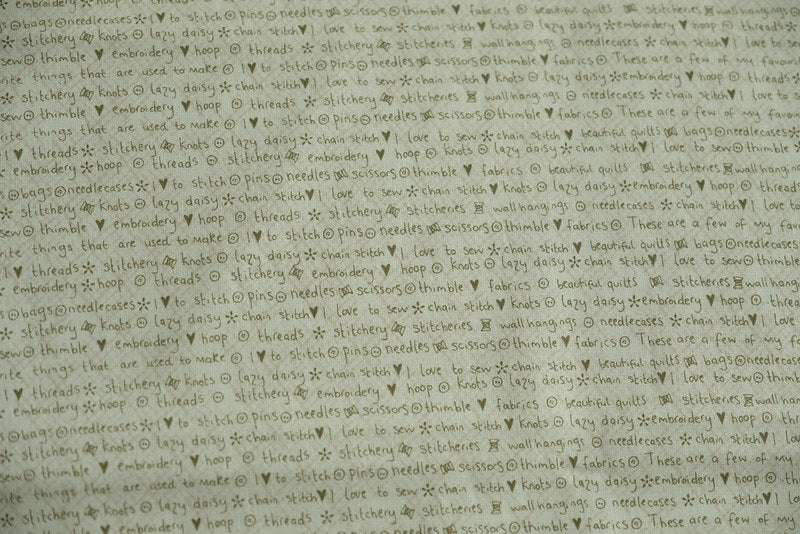 embroidery hoop
bags needlecases I ♥ to stitch pins needles scissors thimble ♥ fabrics beautiful quilts stitcheries wallhangings
stitchery knots lazy daisy chain stitch ♥ I love to sew chain stitch ♥ knots lazy daisy embroidery ♥ hoop threads
sew thimble ♥ embroidery ♥ hoop threads stitchery stitcheries wallhangings needlecases chain stitch ♥ I love to sew
rite things that are used to make I ♥ to stitch pins needles scissors thimble ♥ fabrics These are a few of my favour
stitchery knots lazy daisy chain stitch ♥ I love to sew chain stitch ♥ knots lazy daisy embroidery ♥ hoop threads
sew thimble ♥ embroidery ♥ hoop threads stitchery stitcheries wallhangings needlecases chain stitch ♥ I love to s
rite things that are used to make I ♥ to stitch pins needles scissors thimble ♥ fabrics These are a few of my favou
I ♥ threads stitchery knots lazy daisy chain stitch ♥ I love to sew chain stitch ♥ beautiful quilts bags needlecases
embroidery hoop threads stitchery embroidery ♥ hoop knots lazy daisy chain stitch ♥ I love to sew thimble
s bags needlecases I ♥ to stitch pins needles scissors thimble ♥ fabrics beautiful quilts stitcheries wallhangings
stitchery knots lazy daisy chain stitch ♥ I love to sew chain stitch ♥ knots lazy daisy embroidery ♥ hoop threads
sew thimble ♥ embroidery ♥ hoop threads stitchery stitcheries wallhangings needlecases chain stitch ♥ I love to
rite things that are used to make I ♥ to stitch pins needles scissors thimble ♥ fabrics These are a few of my favo
I ♥ threads stitchery knots lazy daisy chain stitch ♥ I love to sew chain stitch ♥ beautiful quilts bags needlecases
embroidery hoop threads stitchery embroidery ♥ hoop knots lazy daisy chain stitch ♥ I love to sew thimble
s bags needlecases I ♥ to stitch pins needles scissors thimble ♥ fabrics beautiful quilts stitcheries wallhanging
stitchery knots lazy daisy chain stitch ♥ I love to sew chain stitch ♥ knots lazy daisy embroidery ♥ hoop threa
sew thimble ♥ embroidery ♥ hoop threads stitchery stitcheries wallhangings needlecases chain stitch ♥ I love
rite things that are used to make I ♥ to stitch pins needles scissors thimble ♥ fabrics These are a few of my fa
I ♥ threads stitchery knots lazy daisy chain stitch ♥ I love to sew chain stitch ♥ beautiful quilts bags needlecase
embroidery hoop threads stitchery embroidery ♥ hoop knots lazy daisy chain stitch ♥ I love to sew thimb
s bags needlecases I ♥ to stitch pins needles scissors thimble ♥ fabrics beautiful quilts stitcheries wallhang
stitchery knots lazy daisy chain stitch ♥ I love to sew chain stitch ♥ knots lazy daisy embroidery ♥ hoop thr
sew thimble ♥ embroidery ♥ hoop threads stitchery stitcheries wallhangings needlecases chain stitch ♥ I lo
rite things that are used to make I ♥ to stitch pins needles scissors thimble ♥ fabrics These are a few of my
stitchery knots lazy daisy chain stitch ♥ I love to sew chain stitch ♥ knots lazy daisy embroidery ♥ hoop
embroidery ♥ hoop threads stitchery stitcheries wallhangings needlecases chain stitch ♥ I
needles scissors thimble ♥ fabrics These are a few of my